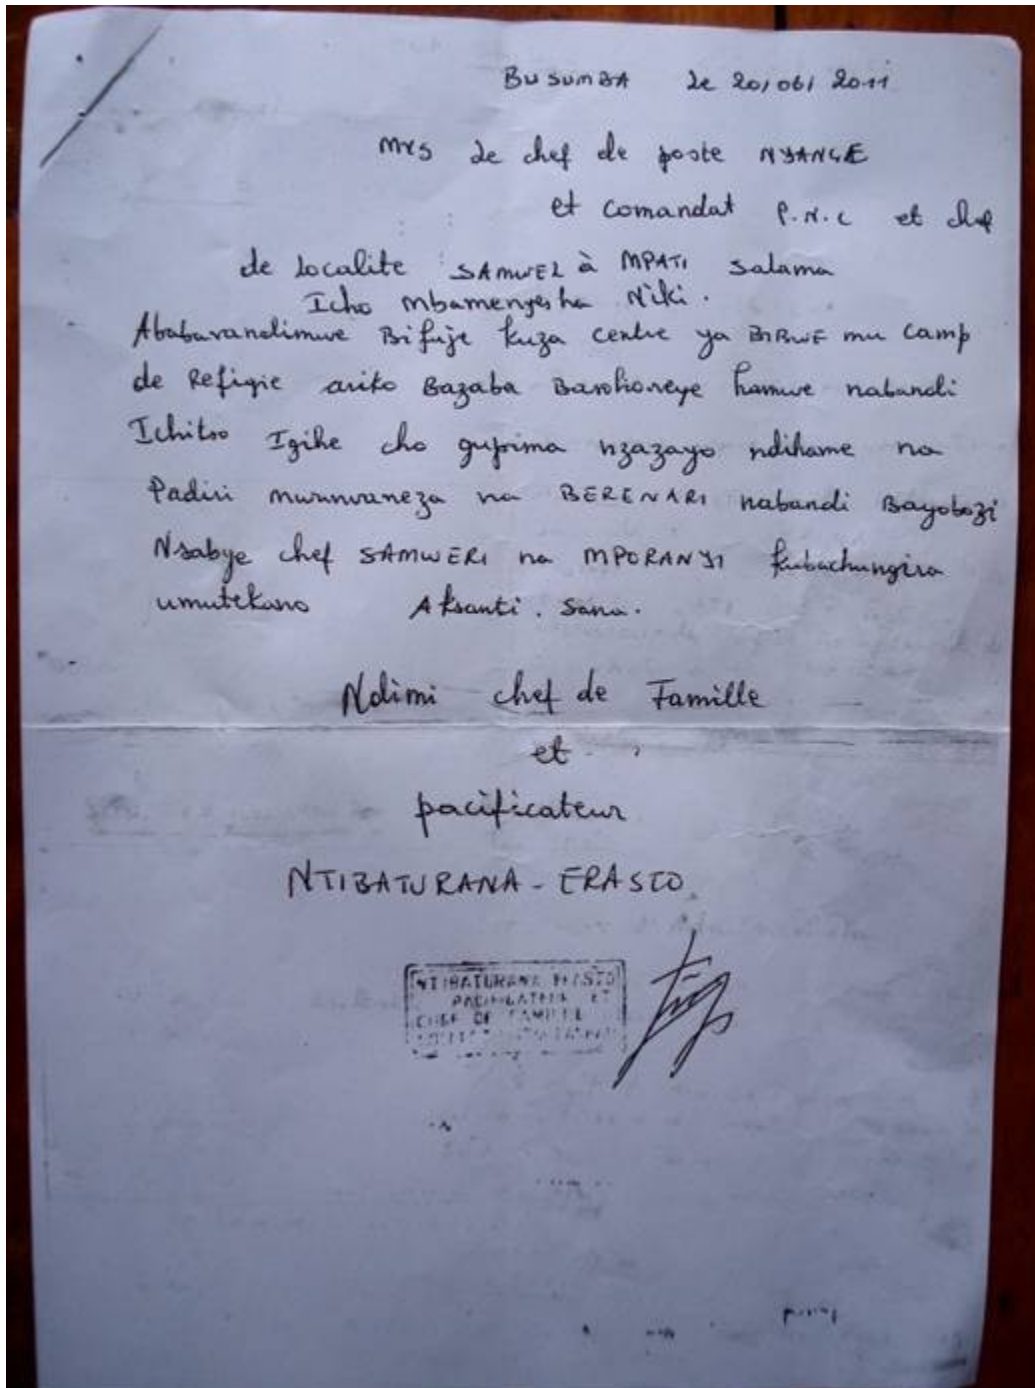 BUSUMBA le 20/06/2011
Mrs le chef de poste NYANGE
et comandat P.N.C et chef
de Localite SAMWEL à MPATI Salama
Icho mbamenyesha Niki.
Ababavandimwe Bifuje kuza centre ya BIBWE mu camp
de Refigie ariko Bazaba Barohoreye hamwe nabandi
Ichitso Igihe cho gupima nzazayo ndihame na
Padiri munwaneza na BERENARI nabandi Bayobozi
Nsabye chef SAMWERI na MPORANYI kubachungira
umutekano Aksanti. Sana.
Ndimi chef de Famille
et
pacificateur
NTIBATURANA - ERASTO
NTIBATURANA ERASTO
PACIFICATEUR ET
CHEF DE FAMILLE